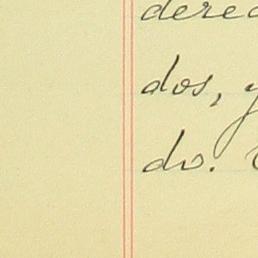 derec
dos, y
do.